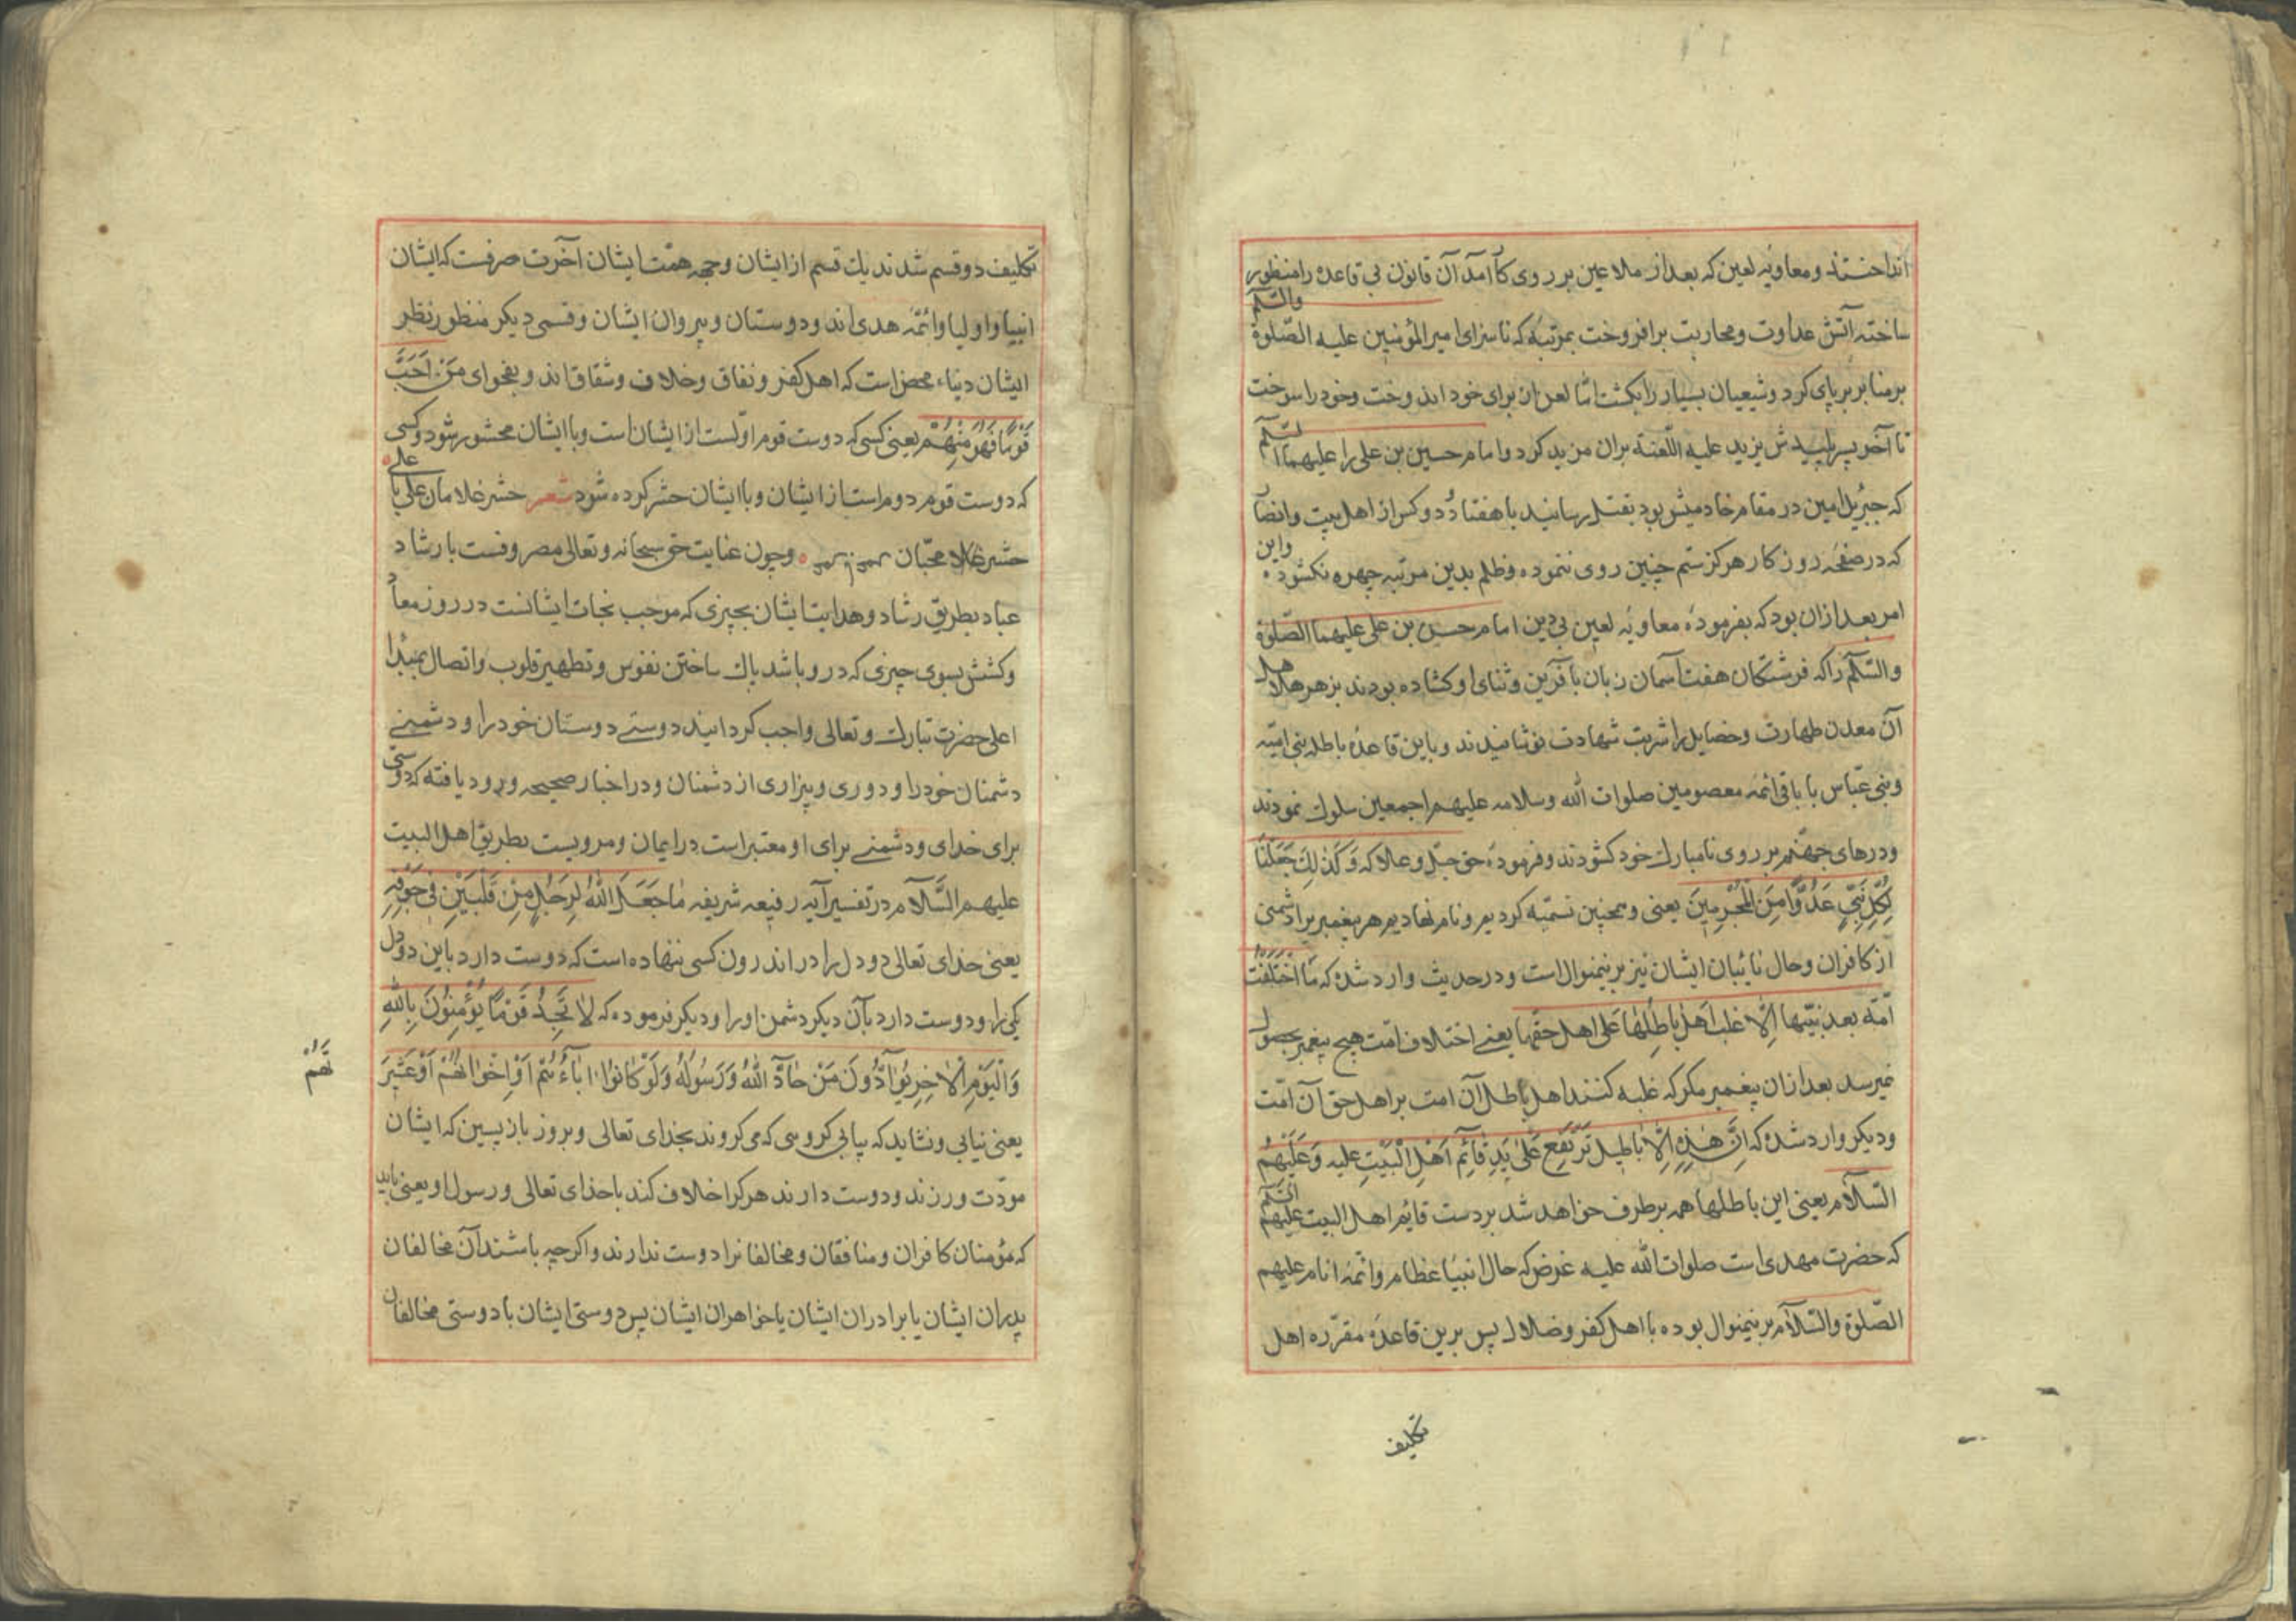 انداختند ومعاویه لعین که بعد از ملاعین بر روی کار آمد آن قانون بی قاعده را منظور
ساخته آتش عداوت ومحاربت برافروخت بمرتبهٔ که ناسزای امیرالمؤمنین علیه الصّلوة والسّلم
بر منابر برپای کرد وشیعیان بسیار را بکشت امّا لعن ان برای خود اندوخت وخود را سوخت
تا آخر پسر پلیدش یزید علیه اللّعنة بران مزید کرد وامام حسین بن علی را علیهما السّلم
که جبرئیل امین در مقام خادمیش بود بقتل رسانید با هفتاد ودو کس از اهل بیت وانصار
که در صفحهٔ روزکار هرکز ستم چنین روی ننموده وظلم بدین مرتبه چهره نکشود واین
امر بعد ازان بود که بفرمودهٔ معاویهٔ لعین بی دین امام حسن بن علی علیهما الصّلوة
والسّلام را که فرشتکان هفت آسمان زبان بآفرین وثنای او کشاده بودند بزهر هلاهل
آن معدن طهارت وخصایل را شربت شهادت نوشانیدند وباین قاعدهٔ باطله بنی امیّه
وبنی عبّاس با باقی ائمهٔ معصومین صلوات الله وسلامه علیهم اجمعین سلوک نمودند
ودرهای جهنّم بر روی نامبارک خود کشودند وفرمودهٔ حق جلّ وعلا که وَكَذٰلِكَ جَعَلْنَا
لِكُلِّ نَبِيٍّ عَدُوًّا مِنَ الْمُجْرِمِينَ یعنی وهمچنین تسمّیه کردیم ونام نهادیم هر پیغمبر یرا دشمنی
از کافران وحال نائبان ایشان نیز برینمنوال است ودر حدیث وارد شده که مَا اخْتَلَفَتْ
اُمّة بعد نبیّها اِلّا غلب اَهل باطِلها عَلی اهل حقّها یعنے اختلاف امّت هیچ پیغمبر بحصول
نمیرسد بعد ازان پیغمبر مکر که غلبه کنند اهل باطل آن امت بر اهل حق آن امّت
ودیکر وارد شده که اِنَّ هٰذِهِ الْاَبٰاطیل تَرْتَفِع عَلٰی یَدِ قٰائِمِ اَهْلِ الْبَیْتِ علیه وَعَلَیْهِمُ
السّلام یعنی این باطلها همه برطرف خواهد شد بر دست قایم اهل البیت علیهم السّلم
که حضرت مهدی است صلوات الله علیه غرض که حال انبیا عظام وائمهٔ انام علیهم
الصّلوة والسّلام برینمنوال بوده با اهل کفر وضلال پس برین قاعدهٔ مقرّره اهل
تکلیف
تکلیف دو قسم شدند یک قسم از ایشان وجهه همّت ایشان آخرت صرفست که ایشان
انبیا واولیا وائمّهٔ هدی اند ودوستان وپیروان ایشان وقسمی دیکر منظور نظر
ایشان دنیاء محض است که اهل کفر ونفاق وخلاف وشقاق اند وبفحوای مَنْ اَحَبَّ
قَوْمًا فَهُوَ مِنْهُمْ یعنی کسی که دوست قوم اوّلست از ایشان است وبا ایشان محشور شود وکسی
که دوست قوم دوم است از ایشان وبا ایشان حشر کرده شود شعر حشر غلامان علی با علی
حشر محبّان وچون عنایت حق سبحانه وتعالی مصروفست بارشاد
عباد بطریق رشاد وهدایت ایشان بچیزی که موجب نجات ایشانست در روز معاد
وکشش بسوی چیزی که درو باشد پاک ساختن نفوس وتطهیر قلوب واتصال بمبدا
اعلی حضرت تبارک وتعالی واجب کردانید دوستے دوستان خود را ودشمنے
دشمنان خود را ودوری وبیزاری از دشمنان ودر اخبار صحیحه ورود یافته که دوستی
برای خدای ودشمنے برای او معتبر است در ایمان ومرویست بطریق اهل البیت
علیهم السّلام در تفسیر آیهٔ رفیعهٔ شریفه مٰا جَعَلَ اللّٰهُ لِرَجُلٍ مِنْ قَلْبَیْنِ فِی جَوْفِهِ
یعنی خدای تعالی دو دل را در اندرون کسی ننهاده است که دوست دارد باین دو دل
یکی را ودوست دارد بآن دیکر دشمن او را ودیکر فرموده که لٰا تَجِدُ قَوْمًا یُؤْمِنُونَ بِاللّٰهِ
وَالْیَوْمِ الْاٰخِرِ یُوٰآدُّونَ مَنْ حٰادَّ اللّٰهَ وَرَسُولَهُ وَلَوْ کٰانُوا اٰبٰاءَهُمْ اَوْ اِخْوٰانَهُمْ اَوْ عَشِیرَ
تَهُمْ
یعنی نیابی ونشاید که بیابی کروهی که می کروند بخدای تعالی وبروز بازپسین که ایشان
مودّت ورزند ودوست دارند هر کرا خلاف کند با خدای تعالی ورسول او یعنی باید
که مؤمنان کافران ومنافقان ومخالفانرا دوست ندارند واکرچه باشند آن مخالفان
پدران ایشان یا برادران ایشان یا خواهران ایشان پس دوستی ایشان با دوستی مخالفان